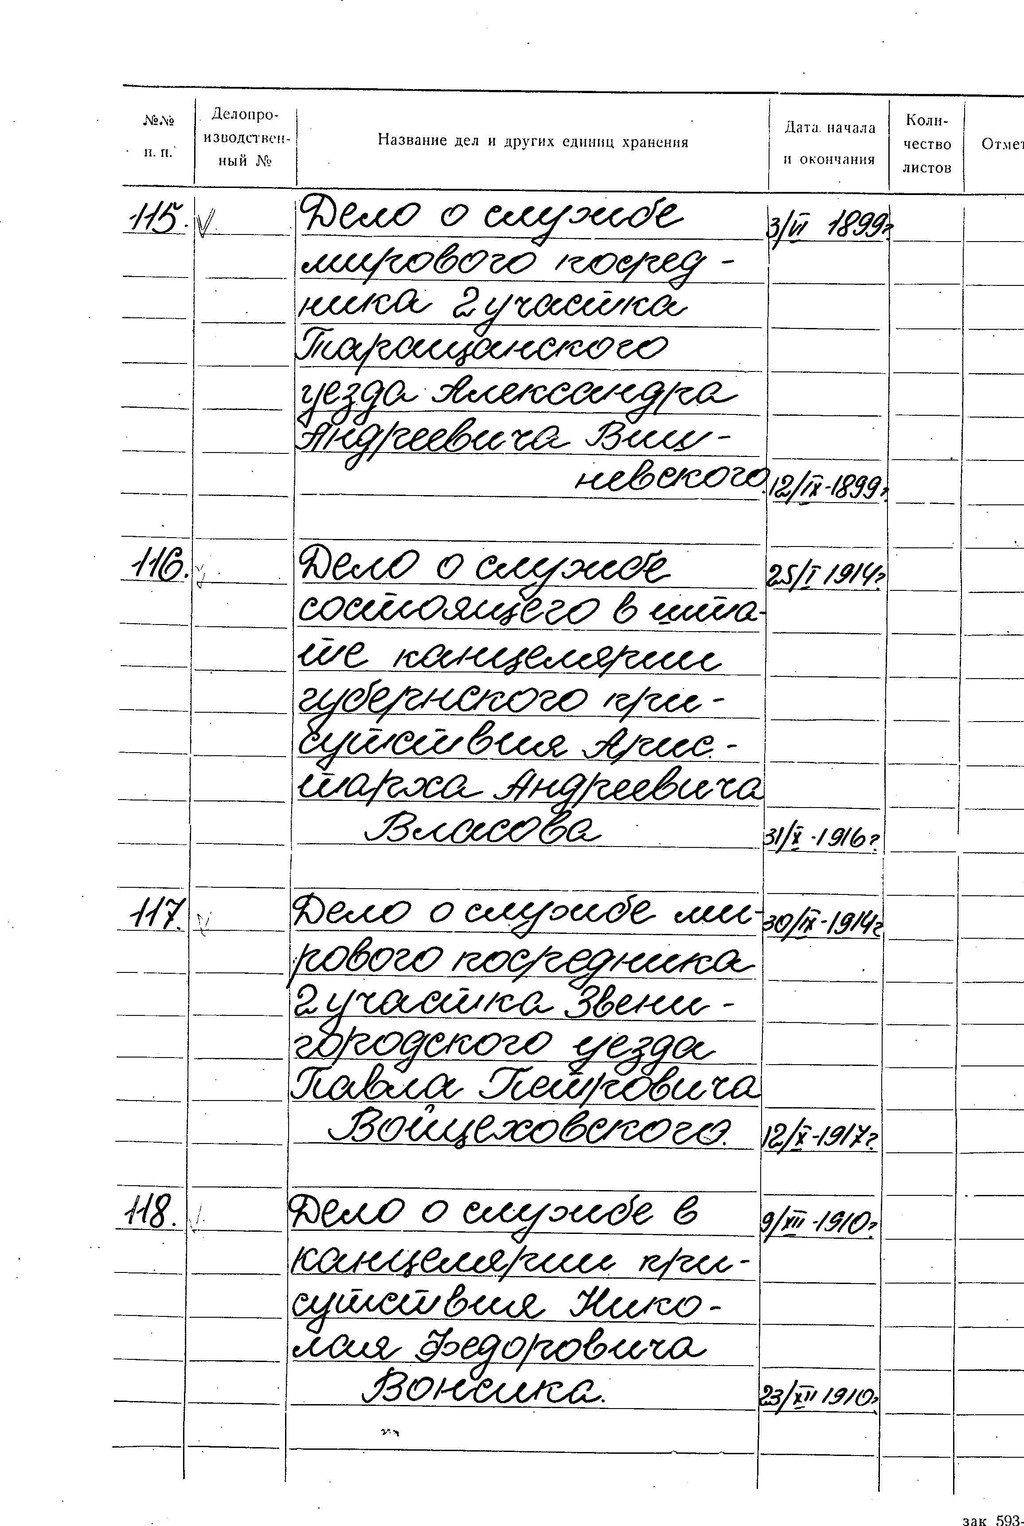 №№ п. п. Делопро-изводствен-ный № Название дел и других единиц хранения Дата начала и окончания Коли-чество листов Отмет
115. Дело о службе 3/VI 1899г
мирового посред-
ника 2 участка
Таращанского
уезда Александра
Андреевича Виш-
невского. 12/IX-1899г
116. Дело о службе 25/I 1914г
состоящего в шта-
те канцелярии
губернского при-
сутствия Арис-
тарха Андреевича
Власова 31/X-1916г.
117. Дело о службе ми- 30/IX-1914г
рового посредника
2 участка Звени-
городского уезда
Павла Петровича
Войцеховского. 12/X-1917г.
118. Дело о службе в 9/XII-1910г
канцелярии при-
сутствия Нико-
лая Федоровича
Вонсика. 23/XII 1910г
зак 593-